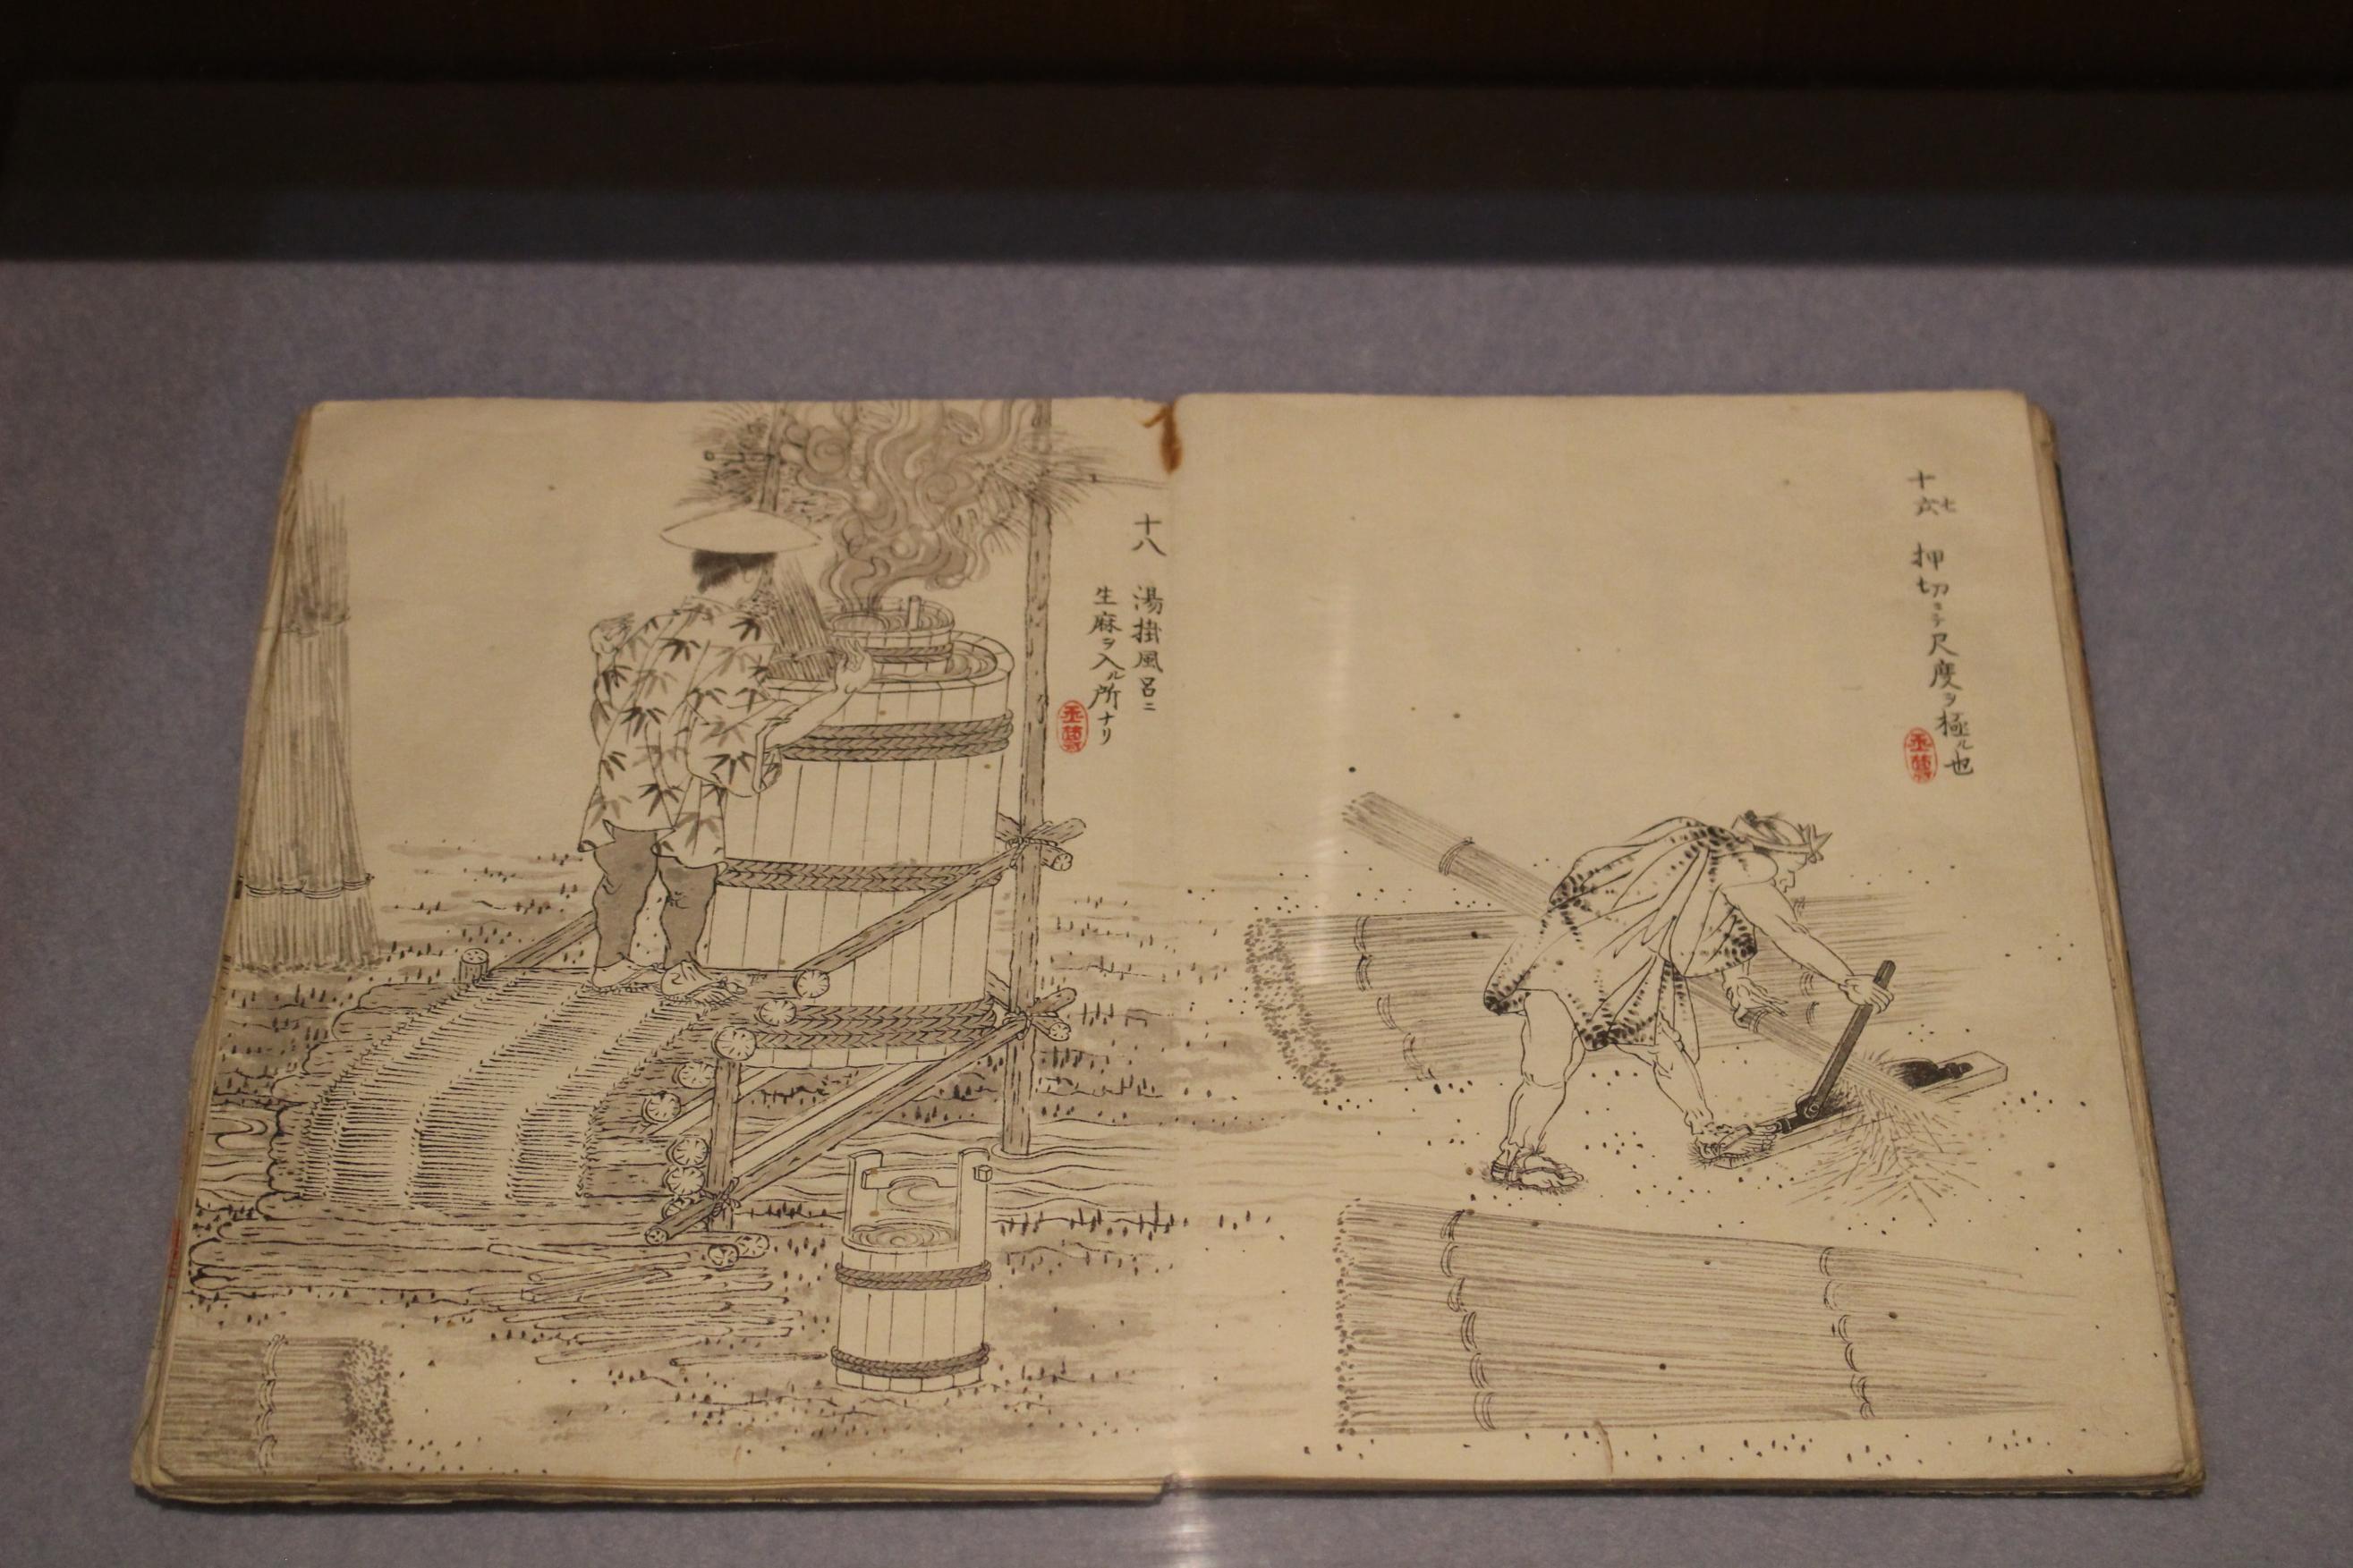 十六七 押切ニテ尺度ヲ極ル也
十八 湯掛風呂ニ
生麻ヲ入ル所ナリ